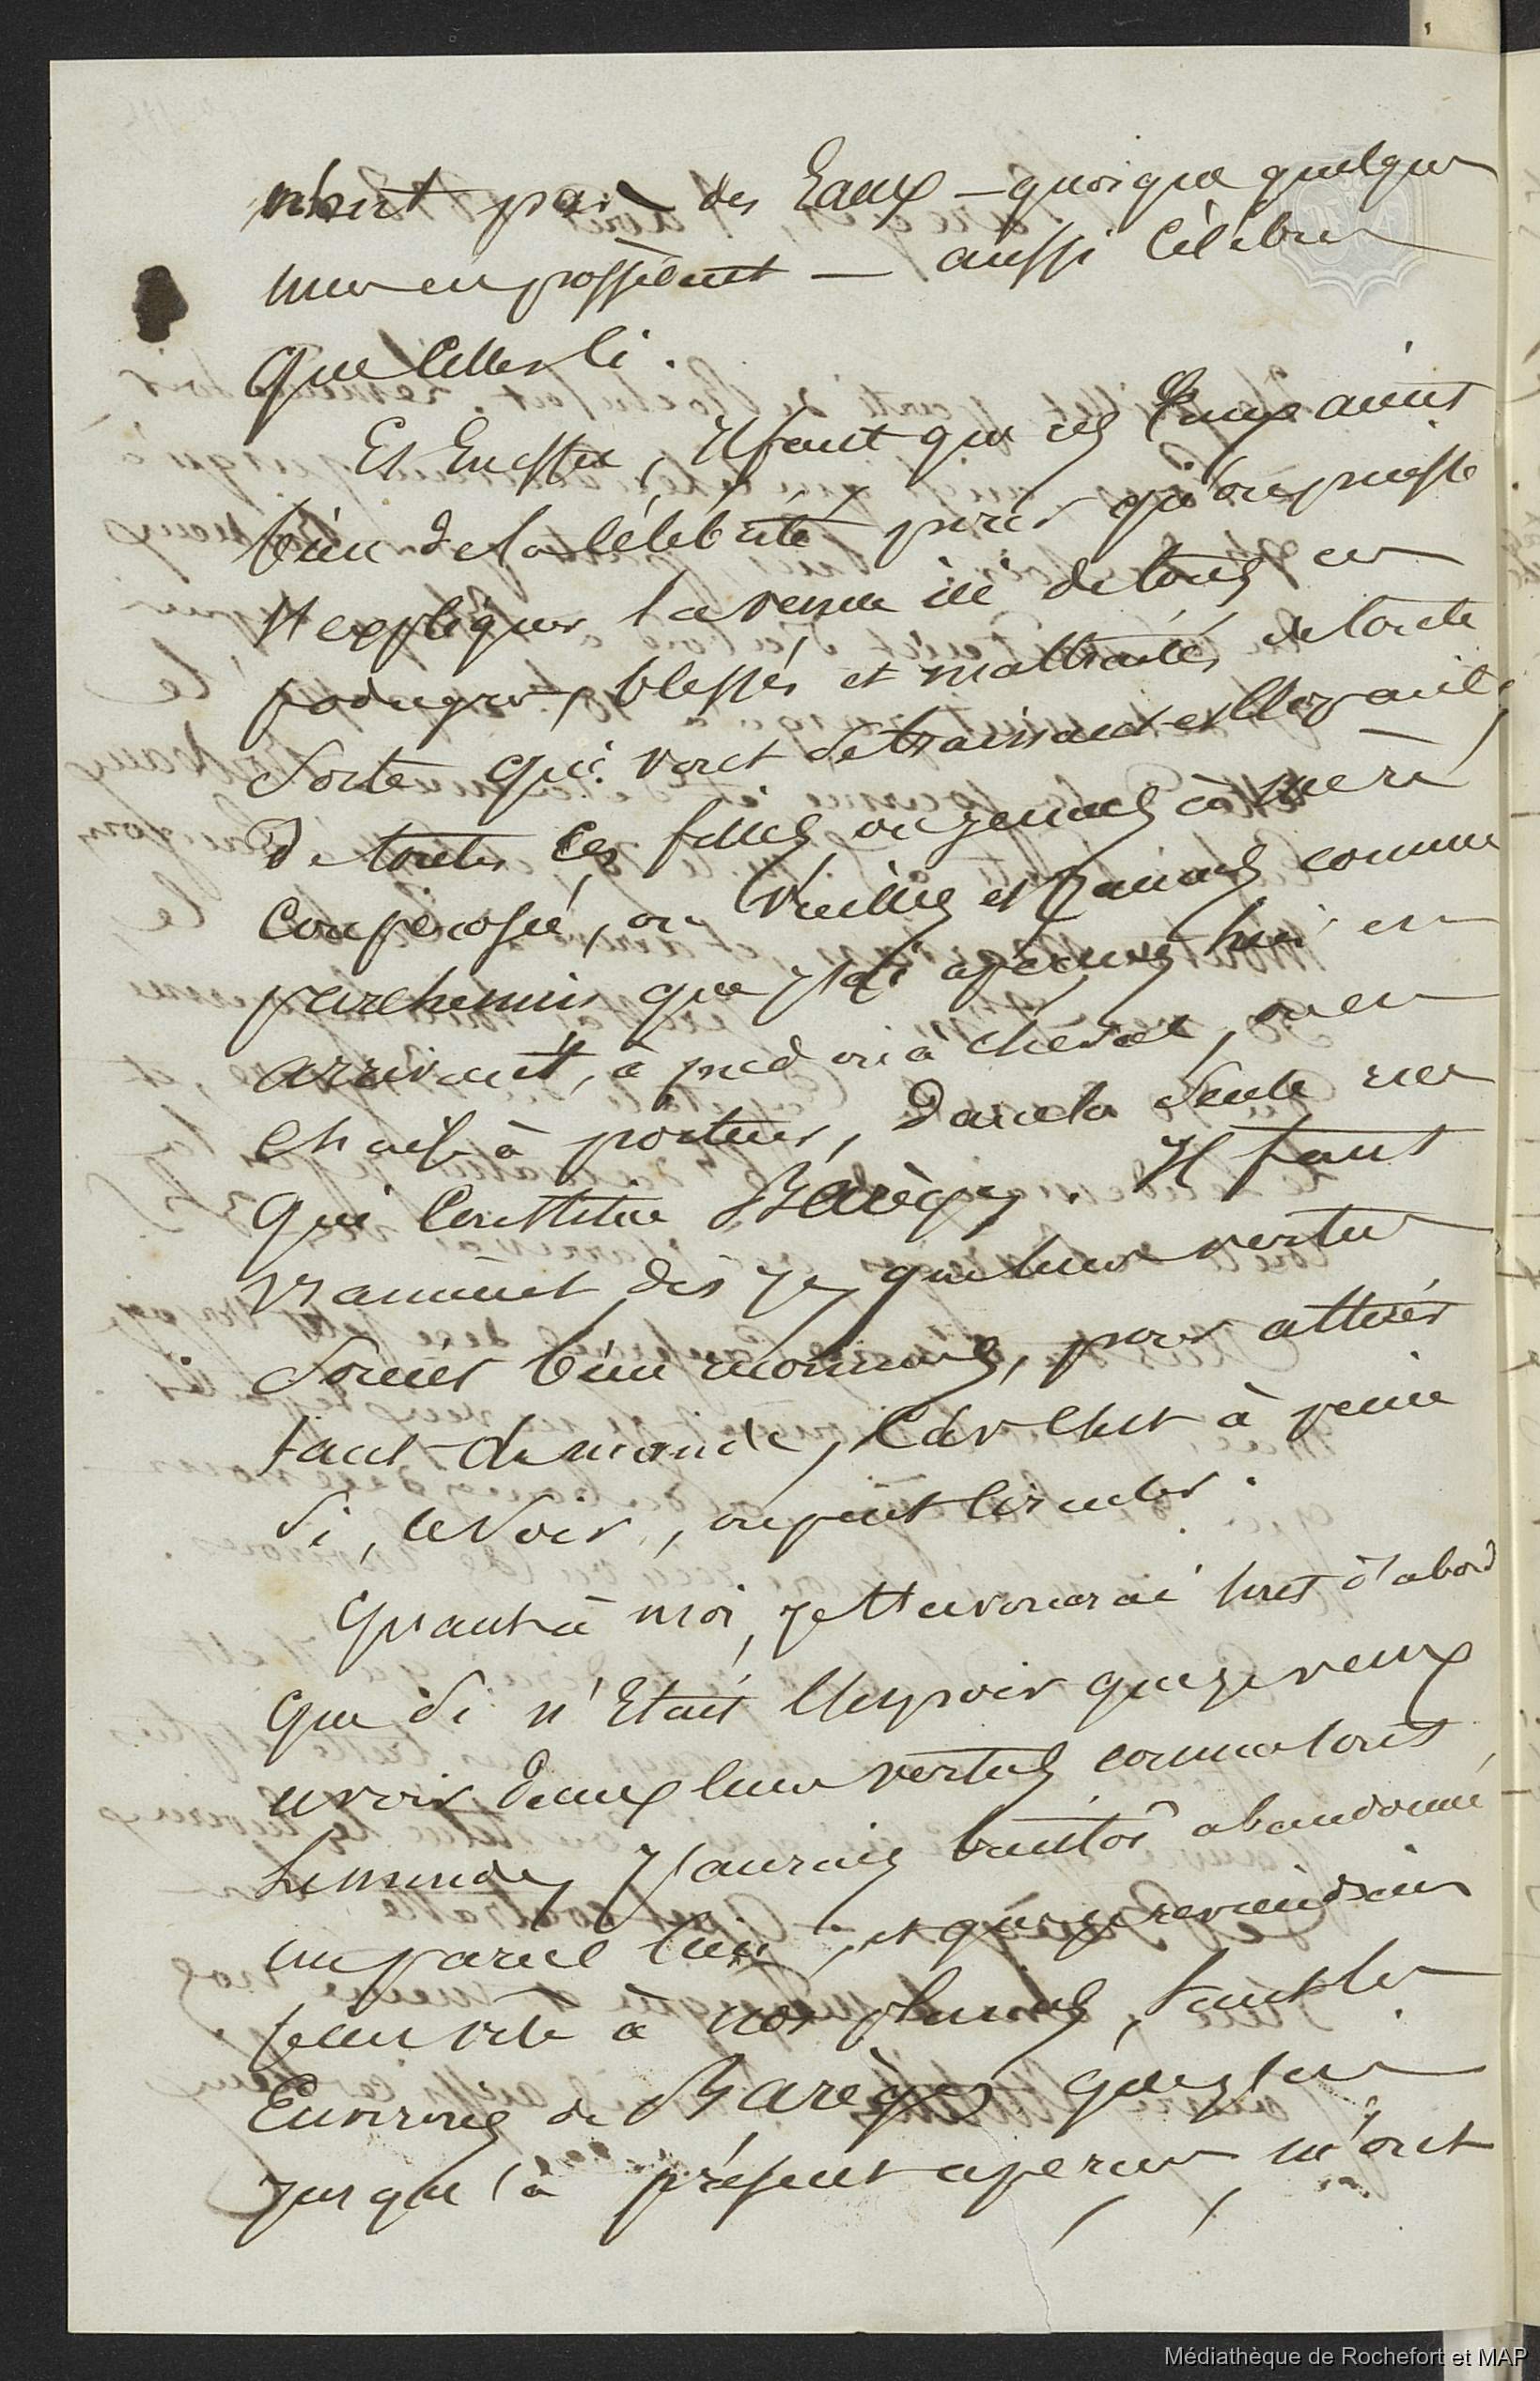 n'ont pas des Eaux – quoique quelques
unes en possèdent – aussi célèbres
que celles-ci.
Et en effet, il faut que ces Eaux aient
bien de la célébrité pour qu'on puisse
s'expliquer la venue ici de tous ces
podagres, blessés et maltraités de toute
sorte qui vont se traissant et clopant,
de toutes ces filles ou jeunes à mère
couperosée, ou vieilles et jaunes comme
parchemin que j'ai aperçues hier en
arrivant, à pied ou à cheval, ou en
chaise à porteur, dans la seule rue
qui constitue Barèges. Il faut
vraiment dis-je, que leurs vertus
soient bien connues, pour attirer
tant de monde, car c'est à peine
si, le soir, on peut circuler.
Quant à moi, je t'avouerai tout d'abord
que si n'était l'espoir que je veux
avoir dans leurs vertus, comme tout
le monde, j'aurais bientôt abandonné
un pareil lieu, et que je reviendrais
bien vite à nos plaines, tant les
Environs de Barèges que j'ai
jusqu'à présent aperçus, m'ont
Médiathèque de Rochefort et MAP